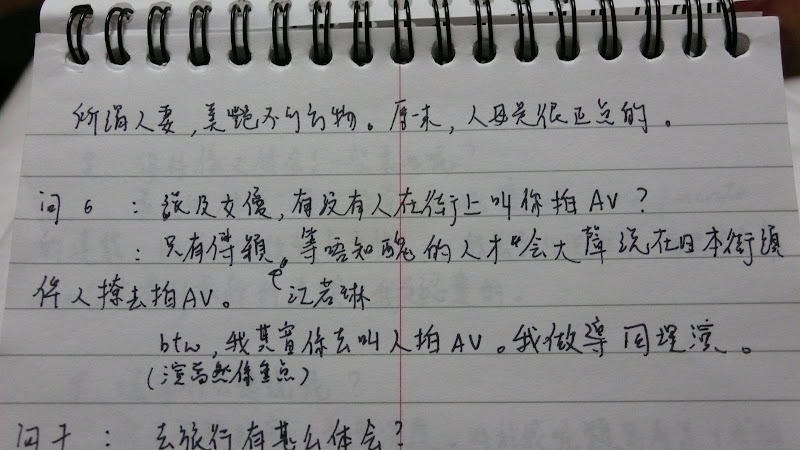 所謂人妻，美艷不可方物。原來，人母是很正点的。
问6：談及女優，有没有人在街上叫你拍AV？
：只有傅穎、等唔知醜的人才会大聲说在日本街頭
江若琳
俾人撩去拍AV。
btw，我其實係去叫人拍AV。我做導同埋演。
（演當然係重点）
问7：去旅行有甚么体会？